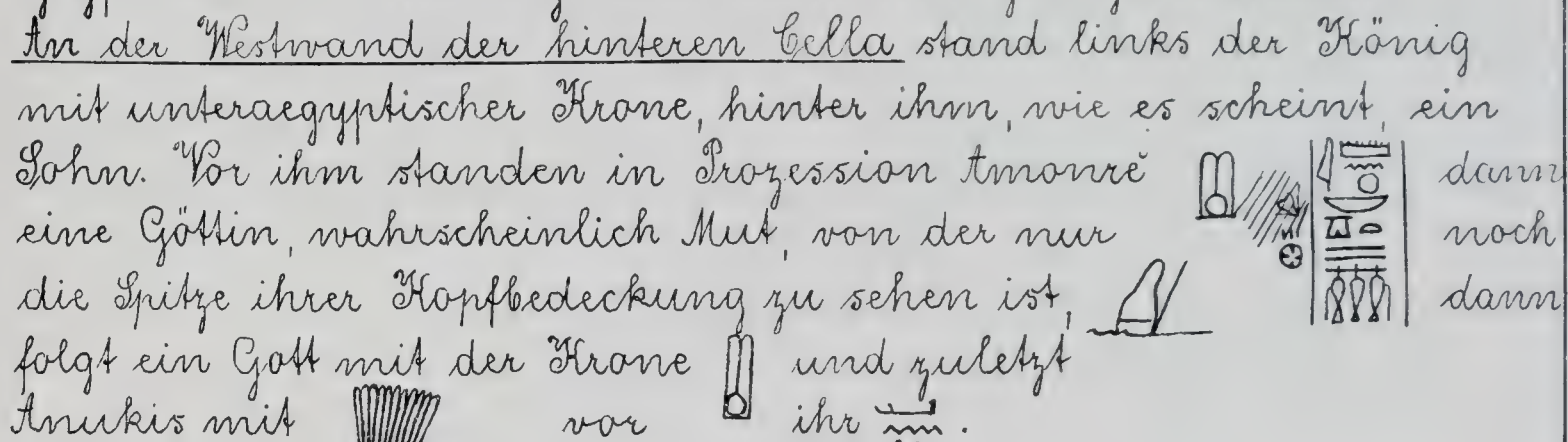 An der Westwand der hinteren Cella stand links der König
mit unteraegyptischer Krone, hinter ihm, wie es scheint, ein
Sohn. Vor ihm standen in Prozession Amonrĕ dann
eine Göttin, wahrscheinlich Mut, von der nur noch
die Spitze ihrer Kopfbedeckung zu sehen ist, dann
folgt ein Gott mit der Krone und zuletzt
Anukis mit vor ihr .